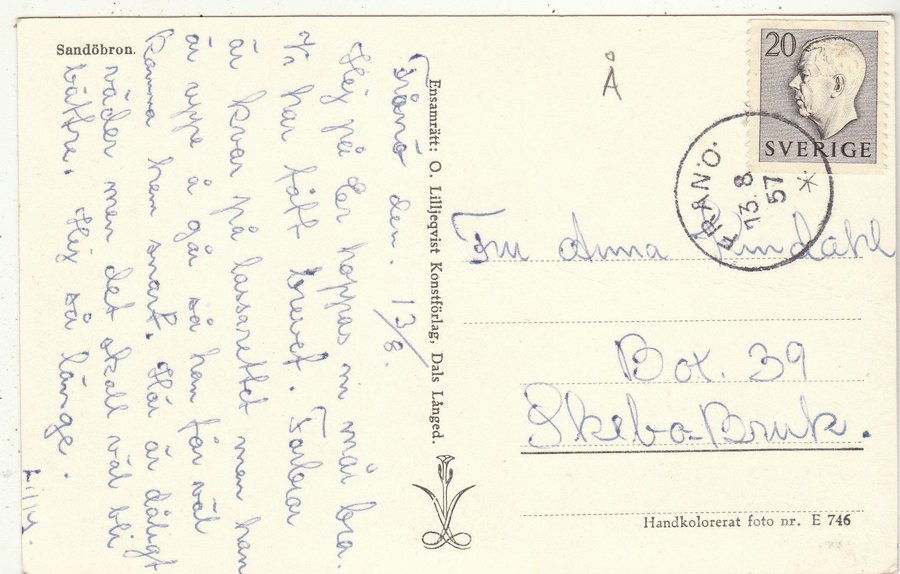 Sandöbron.
Frånö den. 13/8.
Hej på Er hoppas ni mår bra.
Vi har fått brevet. Farbror
är kvar på lassarettet men han
är uppe å går så han får väl
komma hem snart. Här är dåligt
väder men det skall väl bli
bättre. Hej så länge.
Lilly.
Ensamrätt: O. Lilljeqvist Konstförlag, Dals Långed.
Å
20
SVERIGE
FRÅNÖ
13.8.
57
*
Fru Anna
Box. 39
Skebo-Bruk.
Handkolorerat foto nr. E 746